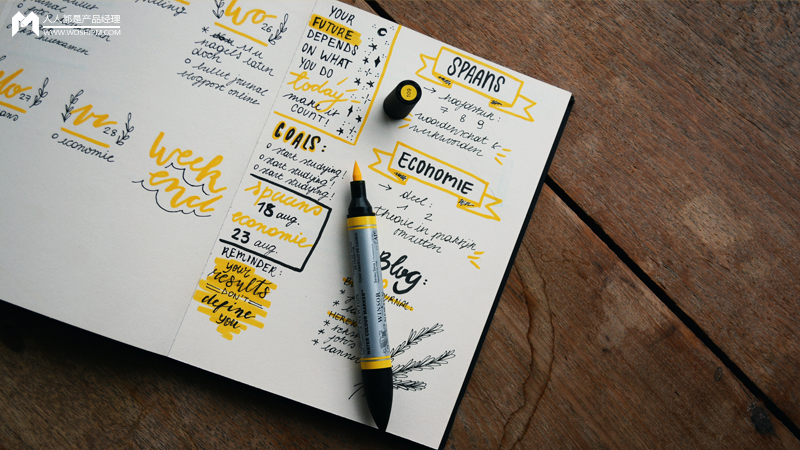 人人都是产品经理
WWW.WOSHIPM.COM
wo 26
nagels laten
doen
○ bullet journal
support online
27
vr 28
○ economie
week
end
YOUR
FUTURE
DEPENDS
ON WHAT
YOU DO
today
make it
COUNT!
GOALS:
○ start studying!
○ start studying!
○ start studying!
spaans
18 aug.
economie
23 aug.
REMINDER:
your
results
DON'T
define
you
SPAANS
→ hoofdstuk:
7 8 9
woordenschat &
werkwoorden
ECONOMIE
→ deel:
1 2
theorie in praktijk
omzetten
Blog:
WINSOR